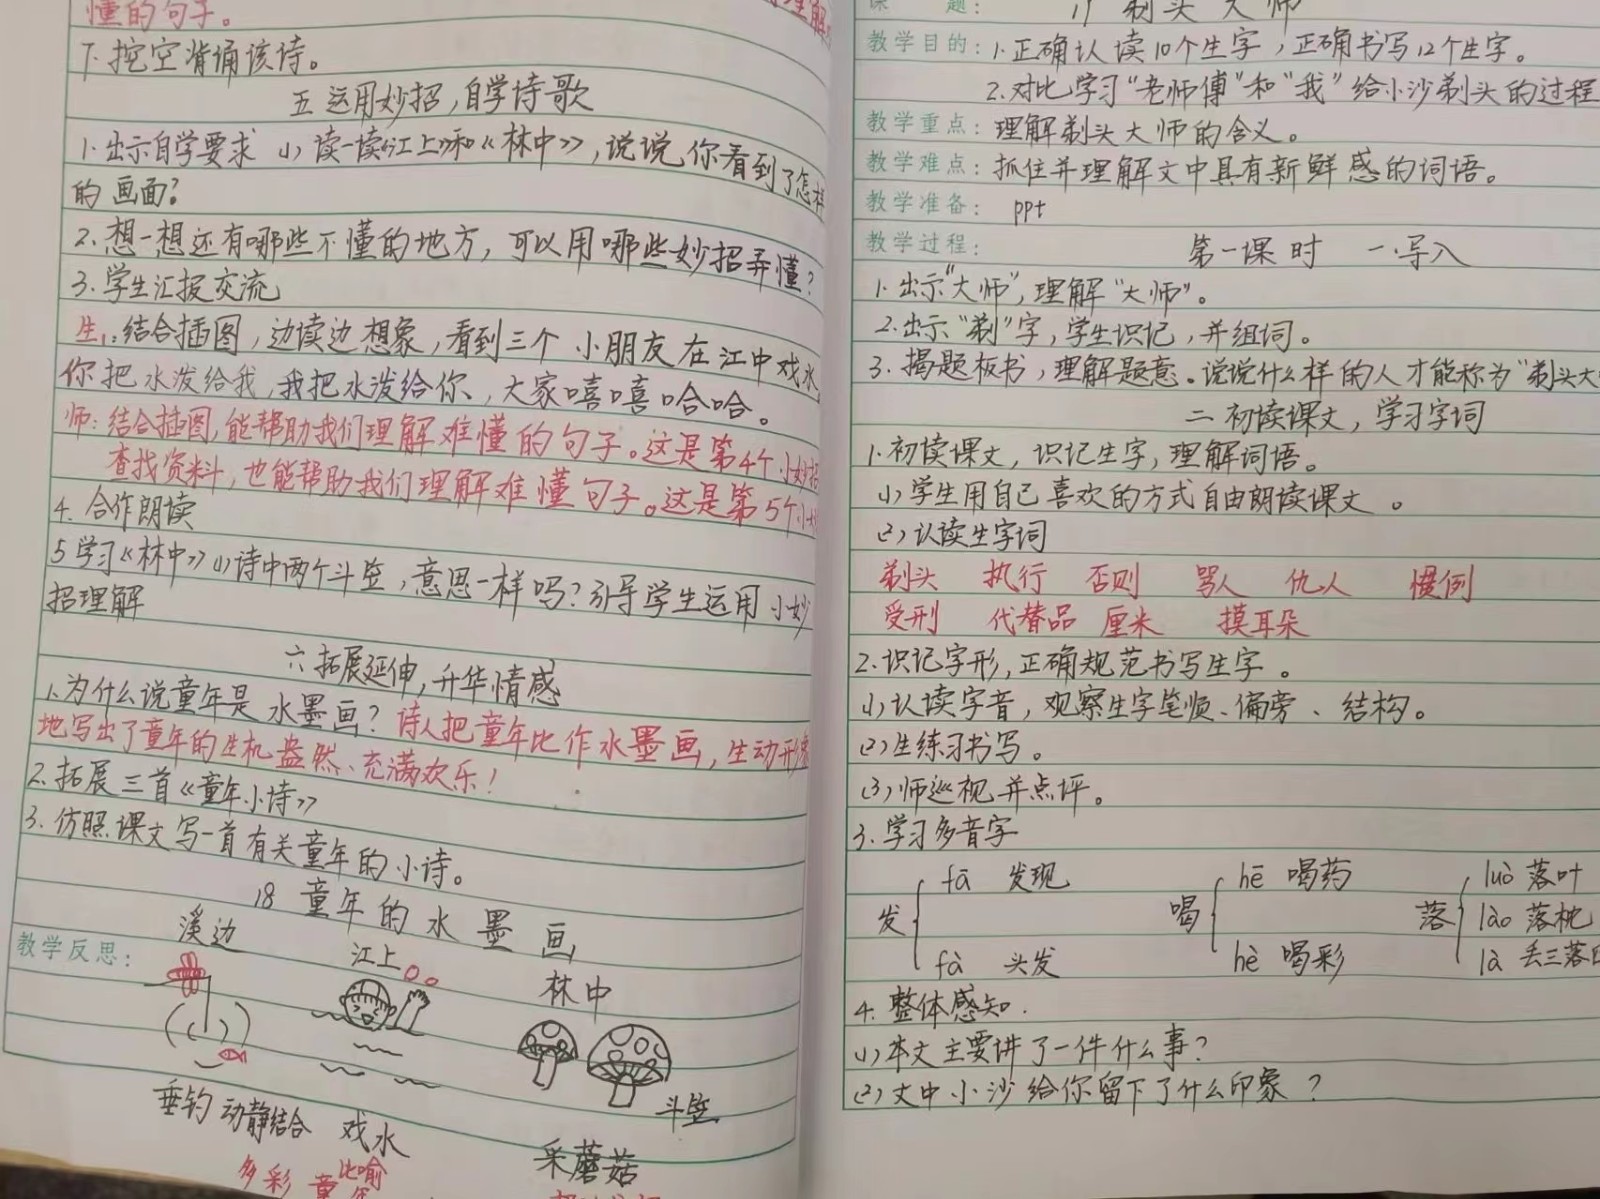 懂的句子。
7.挖空背诵该诗。
五 运用妙招,自学诗歌
1.出示自学要求 (1) 读一读《江上》和《林中》,说说你看到了怎样
的画面?
2.想一想还有哪些不懂的地方,可以用哪些妙招弄懂?
3.学生汇报交流
生1:结合插图,边读边想象,看到三个小朋友在江中戏水
你把水泼给我,我把水泼给你、大家嘻嘻哈哈。
师:结合插图,能帮助我们理解难懂的句子。这是第4个小妙招
查找资料,也能帮助我们理解难懂句子。这是第5个小
4.合作朗读
5学习《林中》(1)诗中两个斗笠,意思一样吗?引导学生运用小妙
招理解
六 拓展延伸,升华情感
1.为什么说童年是水墨画?诗人把童年比作水墨画,生动形象
地写出了童年的生机盎然、充满欢乐!
2.拓展三首《童年小诗》
3.仿照课文写一首有关童年的小诗。
18 童年的水墨画
教学反思:
溪边 江上 林中
斗笠
垂钓 动静结合 戏水 采蘑菇
多彩童年 比喻
题: 剃头大师
教学目的:1.正确认读10个生字,正确书写12个生字。
2.对比学习“老师傅”和“我”给小沙剃头的过程
教学重点:理解剃头大师的含义。
教学难点:抓住并理解文中具有新鲜感的词语。
教学准备:ppt
教学过程: 第一课时 一.导入
1.出示“大师”,理解“大师”。
2.出示“剃”字,学生识记,并组词。
3.揭题板书,理解题意。说说什么样的人才能称为“剃头大
二 初读课文,学习字词
1.初读课文,识记生字,理解词语。
(1)学生用自己喜欢的方式自由朗读课文。
(2)认读生字词
剃头 执行 否则 骂人 仇人 惯例
受刑 代替品 厘米 摸耳朵
2.识记字形,正确规范书写生字。
(1)认读字音,观察生字笔顺、偏旁、结构。
(2)生练习书写。
(3)师巡视并点评。
3.学习多音字
fā 发现 hē 喝药 luò 落叶
发 喝 落 lào 落枕
fà 头发 hè 喝彩 là 丢三落四
4.整体感知.
(1)本文主要讲了一件什么事?
(2)文中小沙给你留下了什么印象?